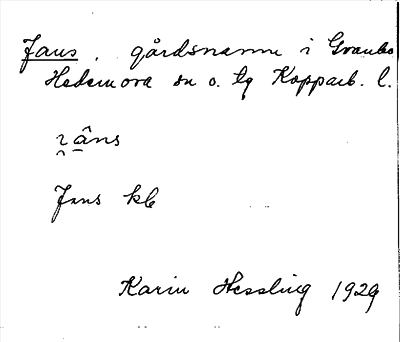 Jans, gårdsnamn i Granbo
Hedemora sn o. tg Kopparb. l.
Jans kb
Karin Hessling 1929